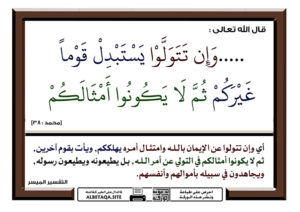 قال الله تعالى :
.....وَإِن تَتَوَلَّوْا يَسْتَبْدِلْ قَوْماً
غَيْرَكُمْ ثُمَّ لَا يَكُونُوا أَمْثَالَكُمْ
[محمد : ٣٨]
أي وإن تتولوا عن الإيمان بالله وامتثال أمره يهلككم، ويأت بقوم آخرين،
ثم لا يكونوا أمثالكم في التولي عن أمر الله، بل يطيعونه ويطيعون رسوله،
ويجاهدون في سبيله بأموالهم وأنفسهم.
التفسير الميسر
احرص على طباعة
ونشر هذه البطاقة
ALBETAQA.SITE